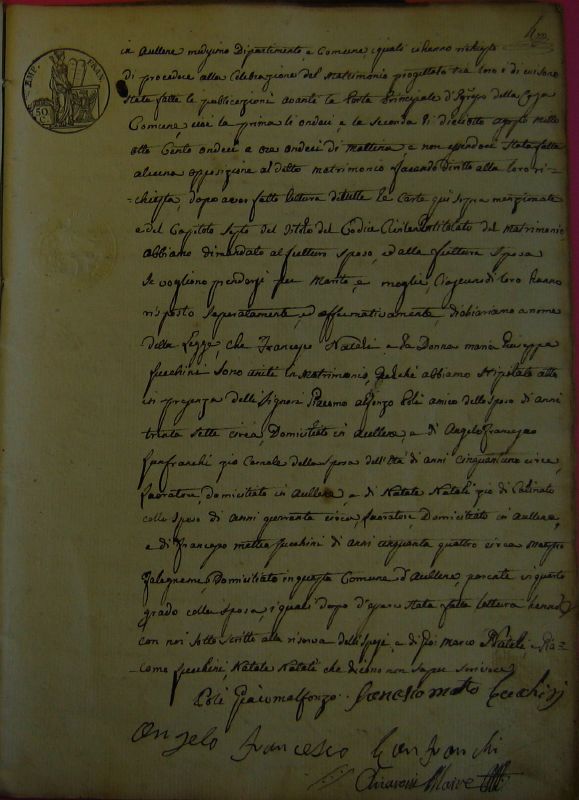 EMP. FRAN
50
in Aullene medesimo Dipartimento, e Comune i quali ci hanno richiesto
di procedere alla Celebrazione del Matrimonio progettato tra loro e di cui sono
state fatte le publicazioni avanti la Porta Principale d'Ingresso della Casa
Comune, cioè la prima li undeci, e la seconda li dieciotto Agosto mille
otto Cento undeci a ora undeci di mattina e non essendoci stata fatta
alcuna opposizione al detto matrimonio facendo diritto alla loro ri-
chiesta, dopo aver fatto lettura di tutte le Carte qui sopra menzionate
e del Capitolo Sesto del titolo del Codice intitolato del matrimonio
abbiamo dimandato al futturo sposo, ed alla futtura sposa
se vogliono prendersi per Marito, e moglie, Ciascun di loro hanno
risposto separatamente, ed affirmativamente, dichiariamo a nome
della Legge, che Francesco Natali e la Donna maria Giuseppa
Lucchini sono uniti in Matrimonio, del che abbiamo stipolato atto
in presenza delli Signori Giacomo alfonzo Poli amico dello sposo di anni
trenta sette circa, Domiciliato in Aullene, e di Angelo Francesco
Lanfranchi zio Carnale della sposa dell'età di anni cinquantuno circa
lavoratore, domiciliato in Aullene, e di Natale Natali zio
collo sposo di anni quaranta circa lavoratore, Domiciliato in Aullene,
e di Francesco matteo Lucchini di anni cinquanta quattro circa Mastro
falegname, Domiciliato in questa Comune d'Aullene, parente in quarto
grado colla sposa, i quali dopo d'essere stata fatta lettura hanno
con noi sotto scritto alla riserva delli sposi, e di Marco Natali, e Gia-
como Lucchini, Natale Natali che dicono non saper scrivere
Poli Giacomalfonzo. Lucchini
Angelo Francesco Lanfranchi
Maire